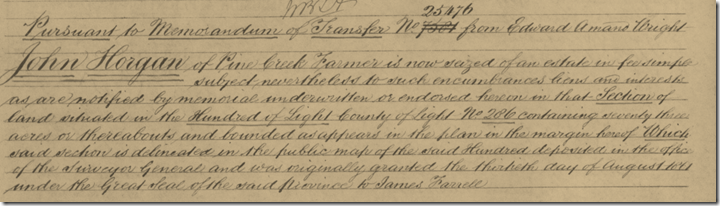 25476
Pursuant to Memorandum of Transfer No 7581 from Edward Amand Wright
John Horgan of Pine Creek Farmer is now seized of an estate in fee simple
subject nevertheless to such encumbrances liens and interests
as are notified by memorial underwritten or endorsed hereon in that Section of
land situated in the Hundred of Light County of Light No 206 containing seventy three
acres or thereabouts and bounded as appears in the plan in the margin hereof Which
said section is delineated in the public map of the said Hundred deposited in the office
of the Surveyor General and was originally granted the thirtieth day of August
under the Great Seal of the said Province to James Farrell